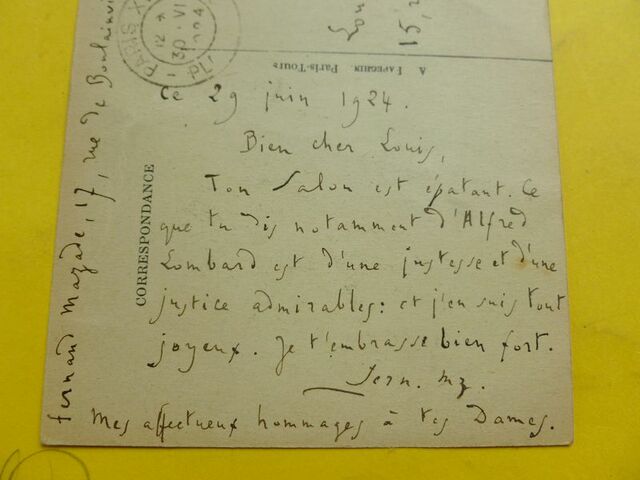 PARIS X
12
30 · VI
Lou
15, r
A PAPEGHIN Paris-Tours
CORRESPONDANCE
Ce 29 juin 1924.
Bien cher Louis,
Ton Salon est épatant. Ce
que tu dis notamment d'Alfred
Lombard est d'une justesse et d'une
justice admirables : et j'en suis tout
joyeux. Je t'embrasse bien fort.
Fern. Mz.
Mes affectueux hommages à tes Dames.
Fernand Mazade, 17, rue de Boulainvi